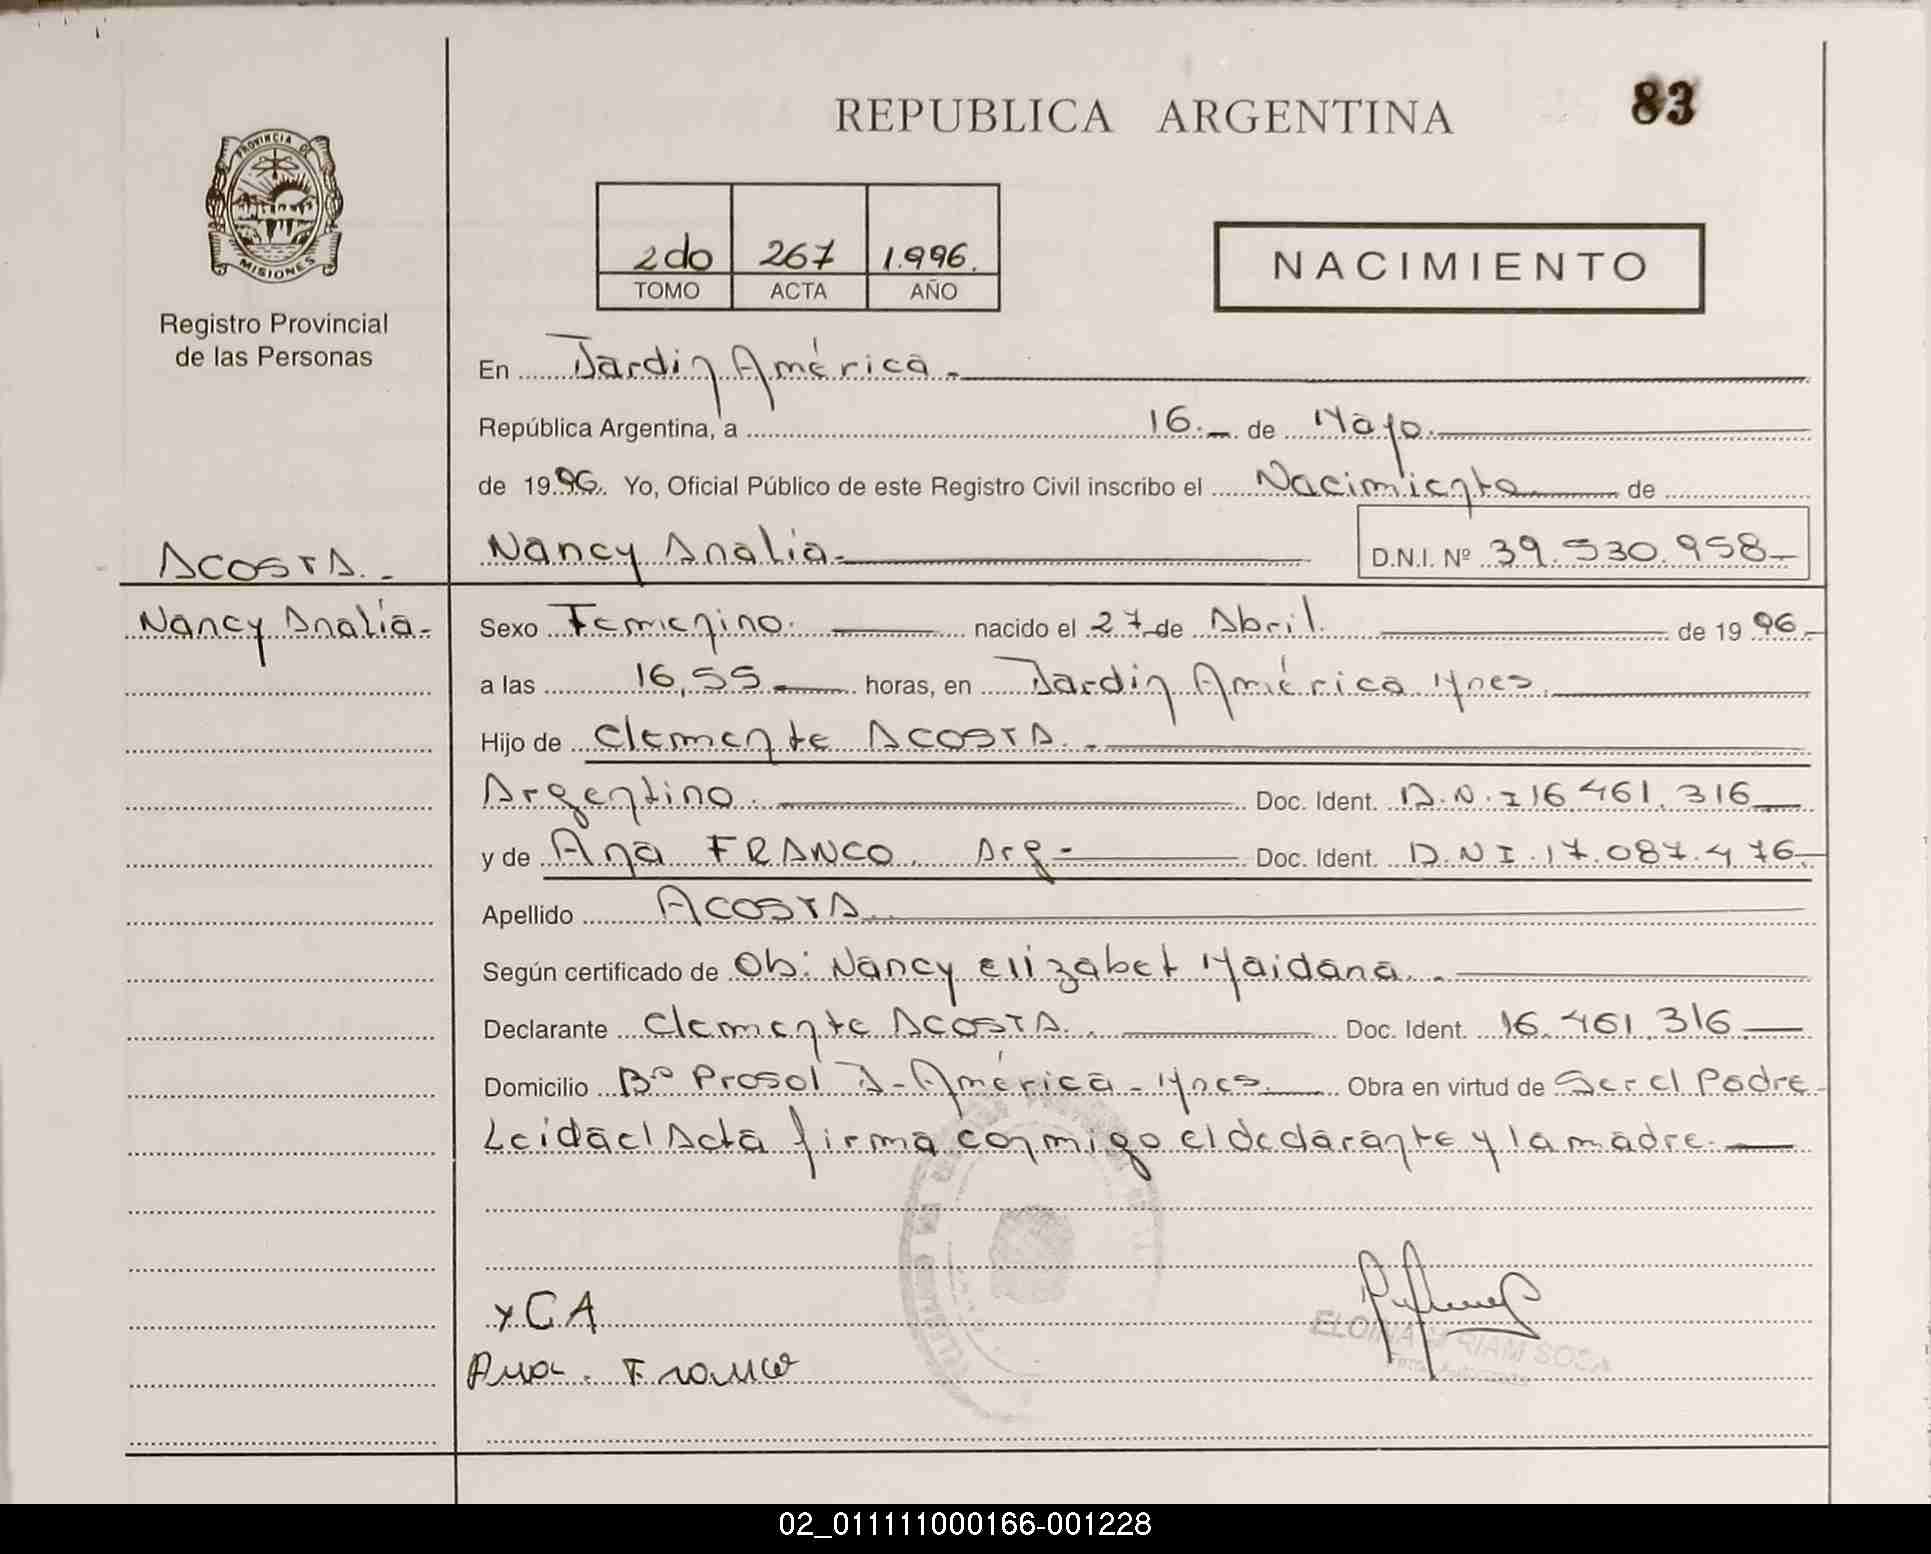 REPUBLICA ARGENTINA
83
PROVINCIA DE
MISIONES
Registro Provincial
de las Personas
2do 267 1.996.
TOMO ACTA AÑO
NACIMIENTO
En Jardin América.-
República Argentina, a 16.- de Mayo.
de 1996. Yo, Oficial Público de este Registro Civil inscribo el Nacimiento de
ACOSTA.- Nancy Analia.- D.N.I. Nº 39.530.958-
Nancy Analía.- Sexo Femenino. nacido el 27 de Abril. de 1996.-
a las 16,55 horas, en Jardin América Mnes.
Hijo de Clemente ACOSTA.-
Argentino. Doc. Ident. D.N.I 16 461.316
y de Ana FRANCO. Arg- Doc. Ident. D.N.I.17.087.476.
Apellido ACOSTA.
Según certificado de Ob: Nancy Elizabet Maidana.-
Declarante Clemente ACOSTA. Doc. Ident. 16.461.316
Domicilio Bº Prosol J-América-Mnes. Obra en virtud de Ser el Padre-
Leida el Acta firma conmigo el declarante y la madre.
x CA
Ana. Franco
02_011111000166-001228